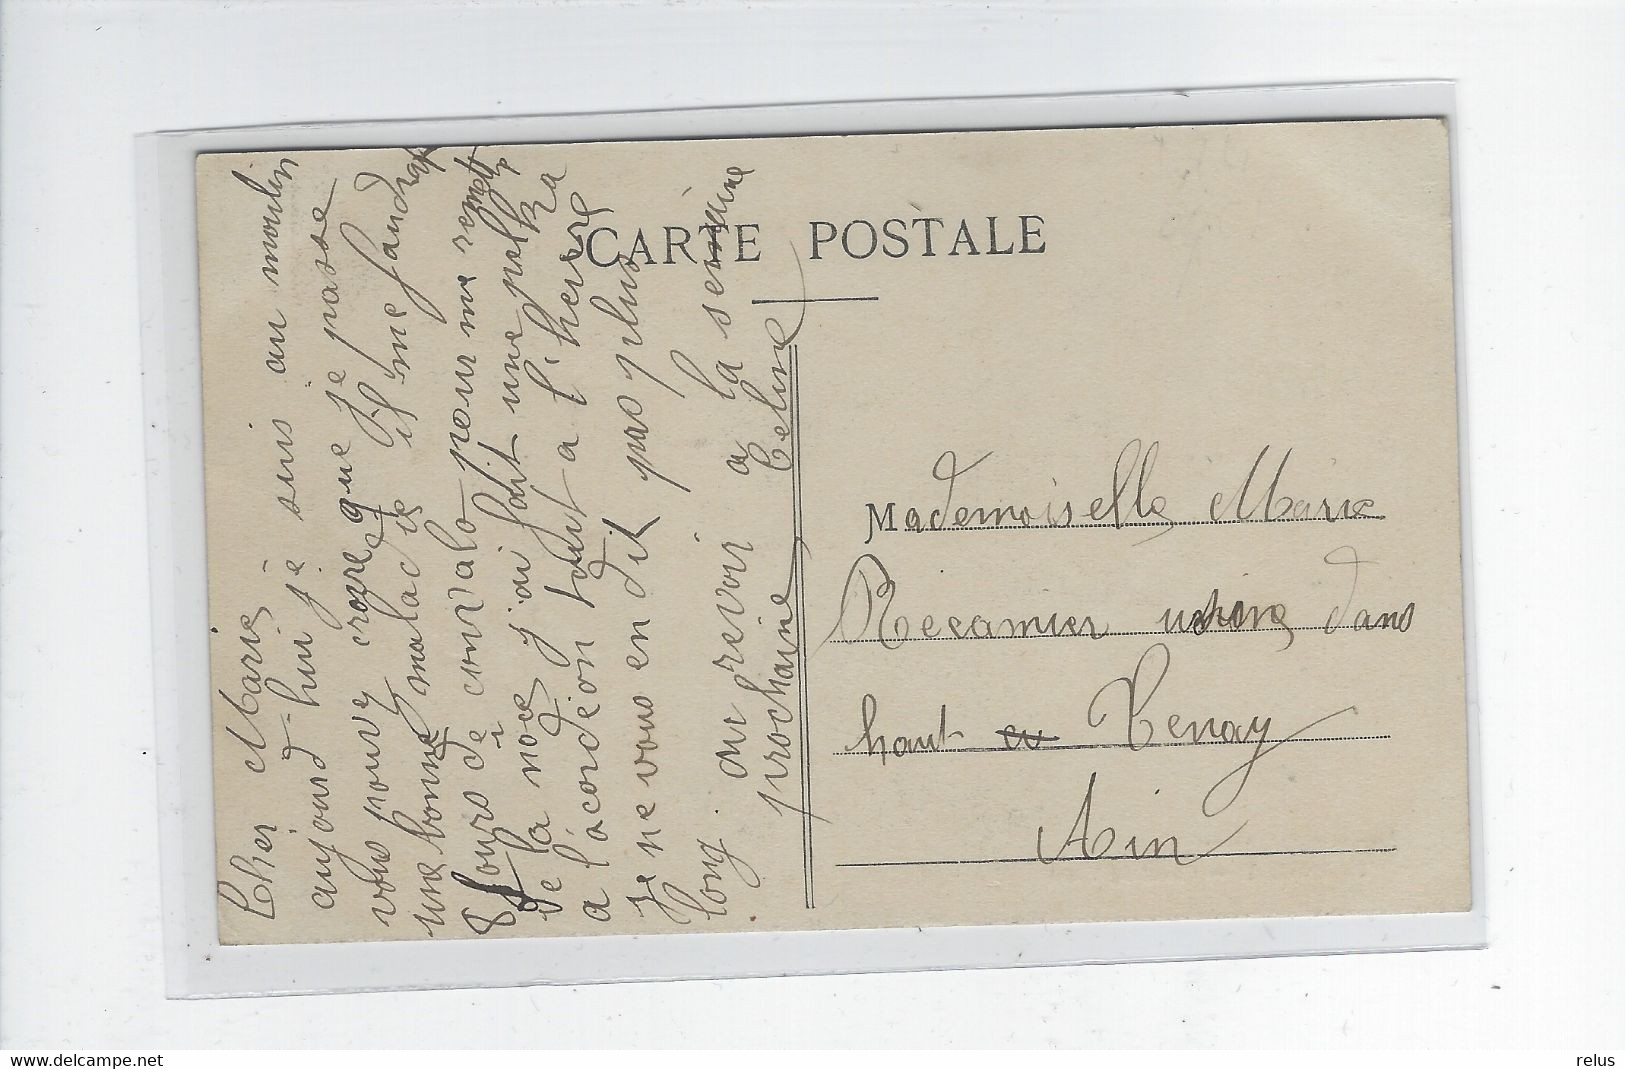 CARTE POSTALE
Cher Marie
aujourd-hui je suis au moulin
vous pouve croire que je passe
une bonne maladie il me faudra
8 jours de convalo pour me remett
de la noce j'ai fait une polka
a l'acordéon tout a l'heure
Je ne vous en dit pas plus
long. au revoir a la semaine
prochaine Celine
Mademoiselle Marie
Recamier usine dans
haut Tenay
Ain
www.delcampe.net
relus